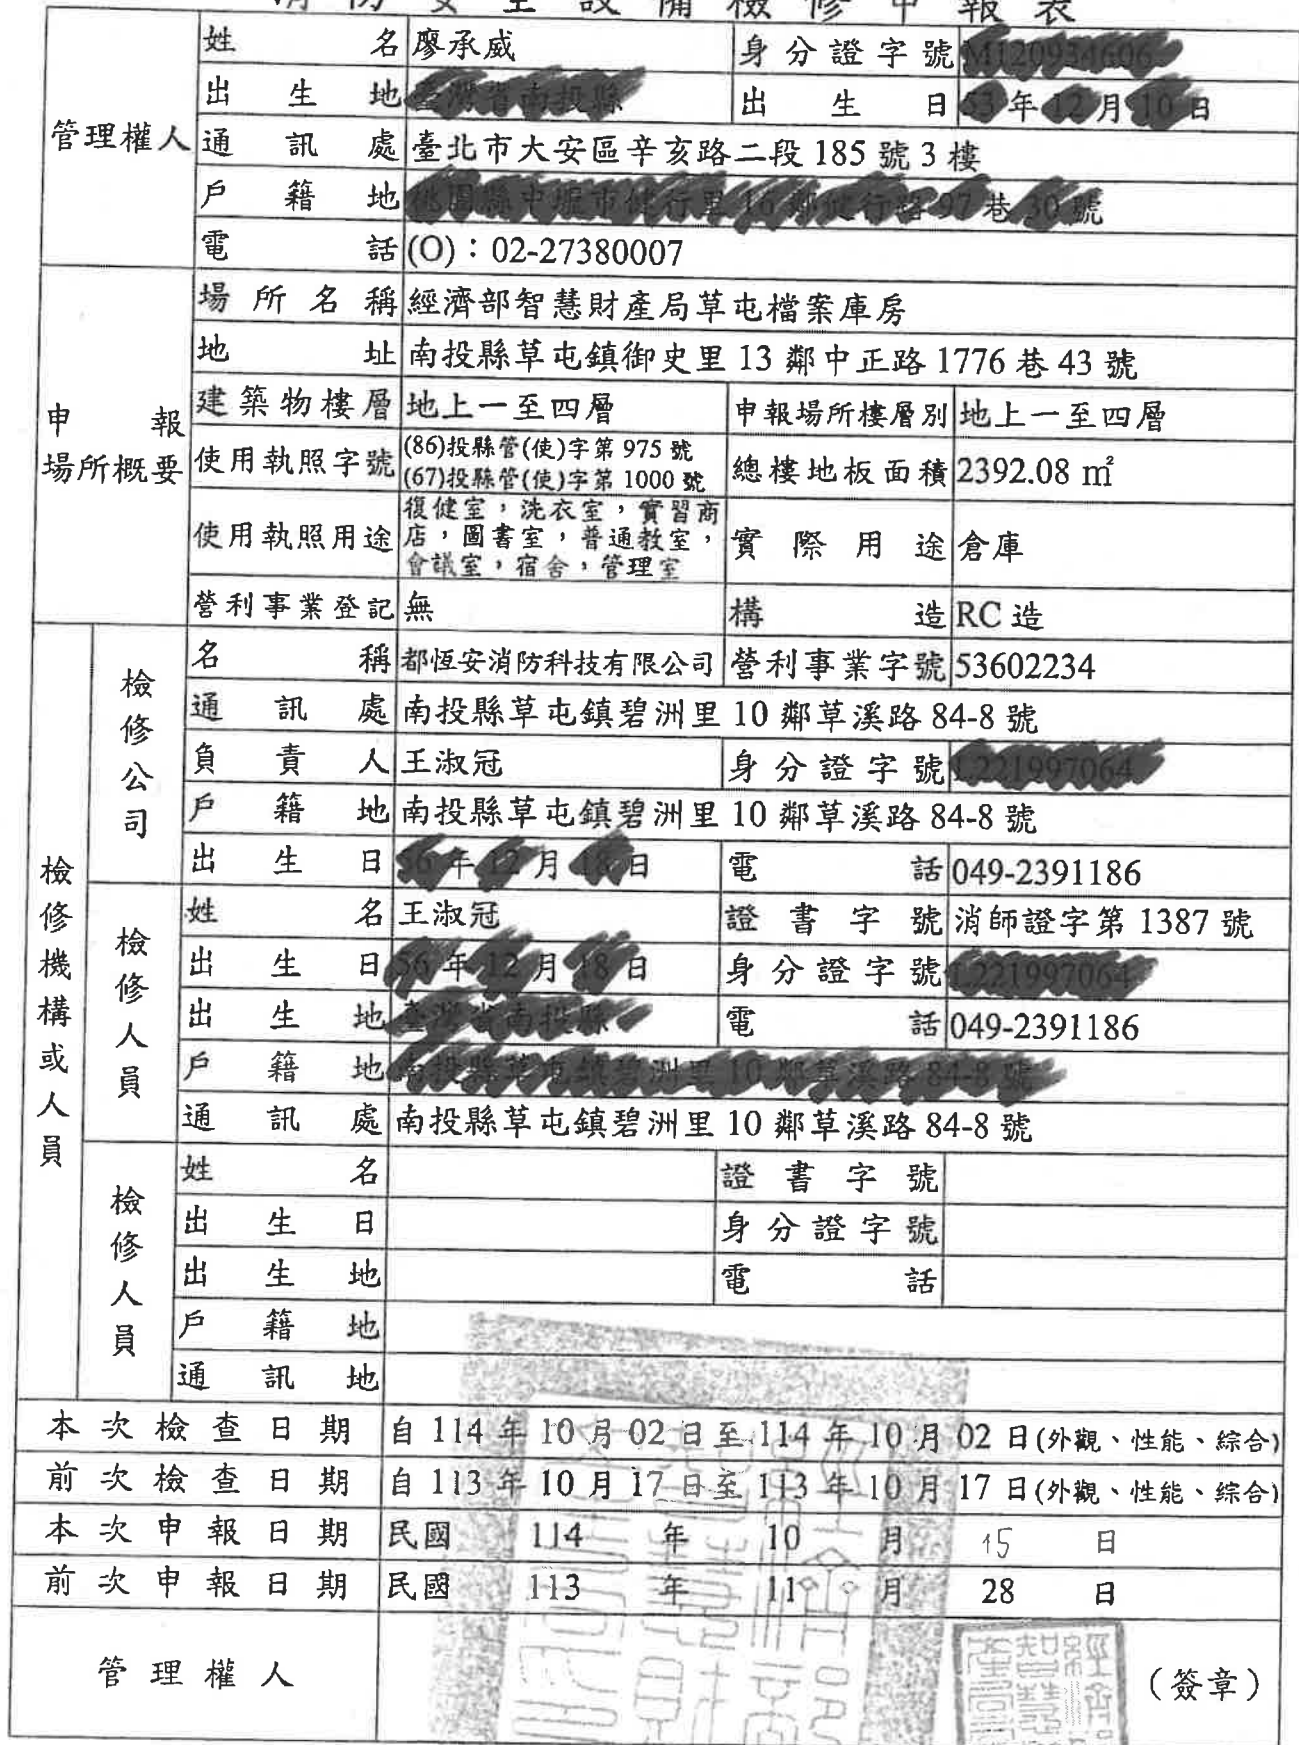 消防安全設備檢修申報表
管理權人
姓名 廖承威 身分證字號
出生地 出生日 年 月 日
通訊處 臺北市大安區辛亥路二段 185 號 3 樓
戶籍地
電話 (O)：02-27380007
申報場所概要
場所名稱 經濟部智慧財產局草屯檔案庫房
地址 南投縣草屯鎮御史里 13 鄰中正路 1776 巷 43 號
建築物樓層 地上一至四層 申報場所樓層別 地上一至四層
使用執照字號 (86)投縣管(使)字第 975 號
(67)投縣管(使)字第 1000 號
總樓地板面積 2392.08 ㎡
使用執照用途 復健室，洗衣室，實習商
店，圖書室，普通教室，
會議室，宿舍，管理室
實際用途 倉庫
營利事業登記 無 構造 RC 造
檢修機構或人員
檢修公司
名稱 都恆安消防科技有限公司 營利事業字號 53602234
通訊處 南投縣草屯鎮碧洲里 10 鄰草溪路 84-8 號
負責人 王淑冠 身分證字號
戶籍地 南投縣草屯鎮碧洲里 10 鄰草溪路 84-8 號
出生日 年 月 日 電話 049-2391186
檢修人員
姓名 王淑冠 證書字號 消師證字第 1387 號
出生日 年 月 日 身分證字號
出生地 電話 049-2391186
戶籍地
通訊處 南投縣草屯鎮碧洲里 10 鄰草溪路 84-8 號
檢修人員
姓名 證書字號
出生日 身分證字號
出生地 電話
戶籍地
通訊地
本次檢查日期 自 114 年 10 月 02 日至 114 年 10 月 02 日(外觀、性能、綜合)
前次檢查日期 自 113 年 10 月 17 日至 113 年 10 月 17 日(外觀、性能、綜合)
本次申報日期 民國 114 年 10 月 15 日
前次申報日期 民國 113 年 11 月 28 日
管理權人 （簽章）